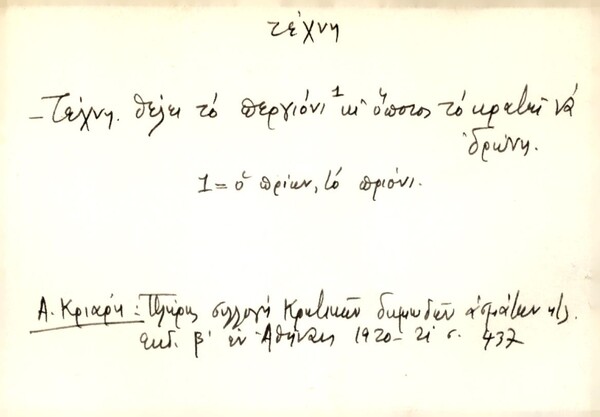 τέχνη
– Τέχνη θέλει τό περγιόνι¹ κι ὅποιος τό κρατεῖ νά
ἱδρώνη.
1 = ὁ πρίων, τό πριόνι.
Α. Κριάρη: Πλήρης συλλογή Κρητικῶν δημωδῶν ἀσμάτων κτλ.
ἐκδ. β' ἐν Ἀθήναις 1920-21 σ. 437